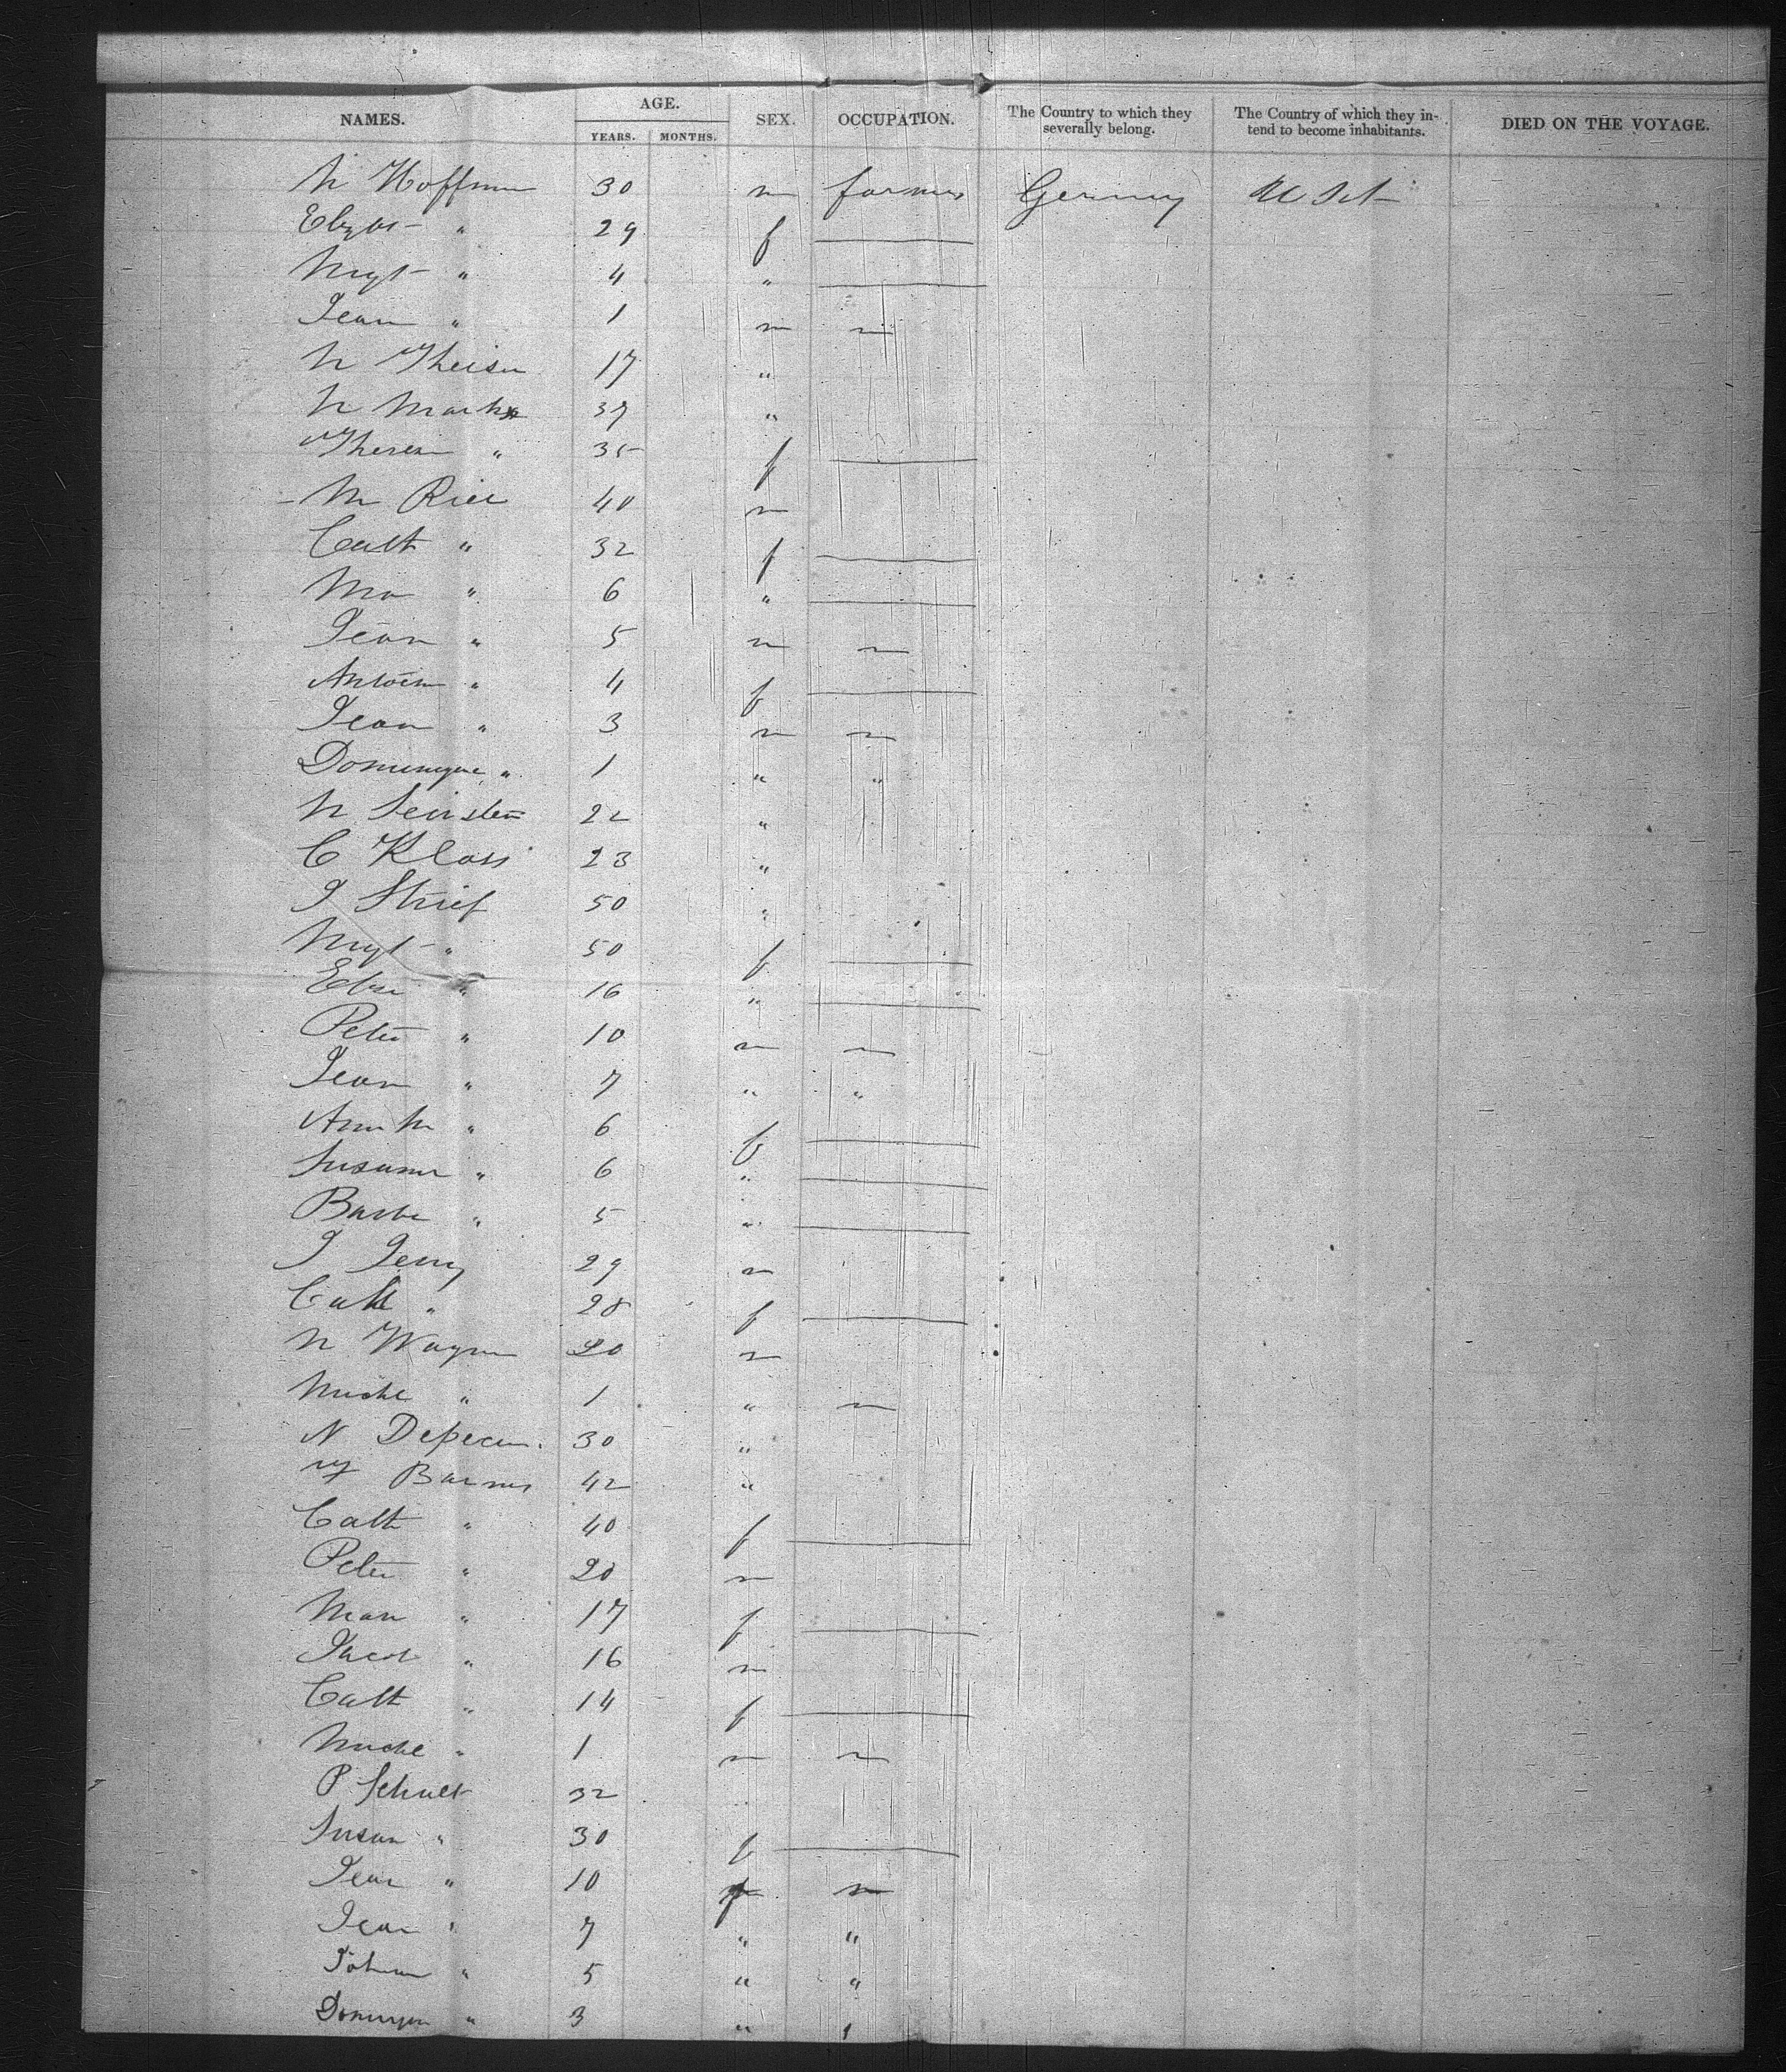 NAMES. AGE. YEARS. MONTHS. SEX. OCCUPATION. The Country to which they severally belong. The Country of which they intend to become inhabitants. DIED ON THE VOYAGE.
N Hoffman 30 m farmer Germany U St
" 29 f
Mgt " 4 "
Jean " 1 m
N Theisen 17 "
N 37 "
Theresa " 35 f
M 40 m
Cath " 32 f
Ma " 6 "
Jean " 5 m
Antoin " 4 f
Jean " 3 m
Dominique " 1 " "
N 22 "
C Klass 23 "
J Strief 50 "
Mgt " 50 f
" 16 "
Peter " 10 m
Jean " 7 " "
Ann M " 6 f
Susanne " 6 "
Barbe " 5 "
J 29 m
Cath " 28 f
N Wagner 20 m
Michl " 1 "
N 30 "
42 "
Cath " 40 f
Peter " 20 m
Mari " 17 f
Jacob " 16 m
Cath " 14 f
Michl " 1 m
P Schult 32
Susan " 30 f
Jean " 10
Jean " 7 " "
" 5 " "
" 3 "